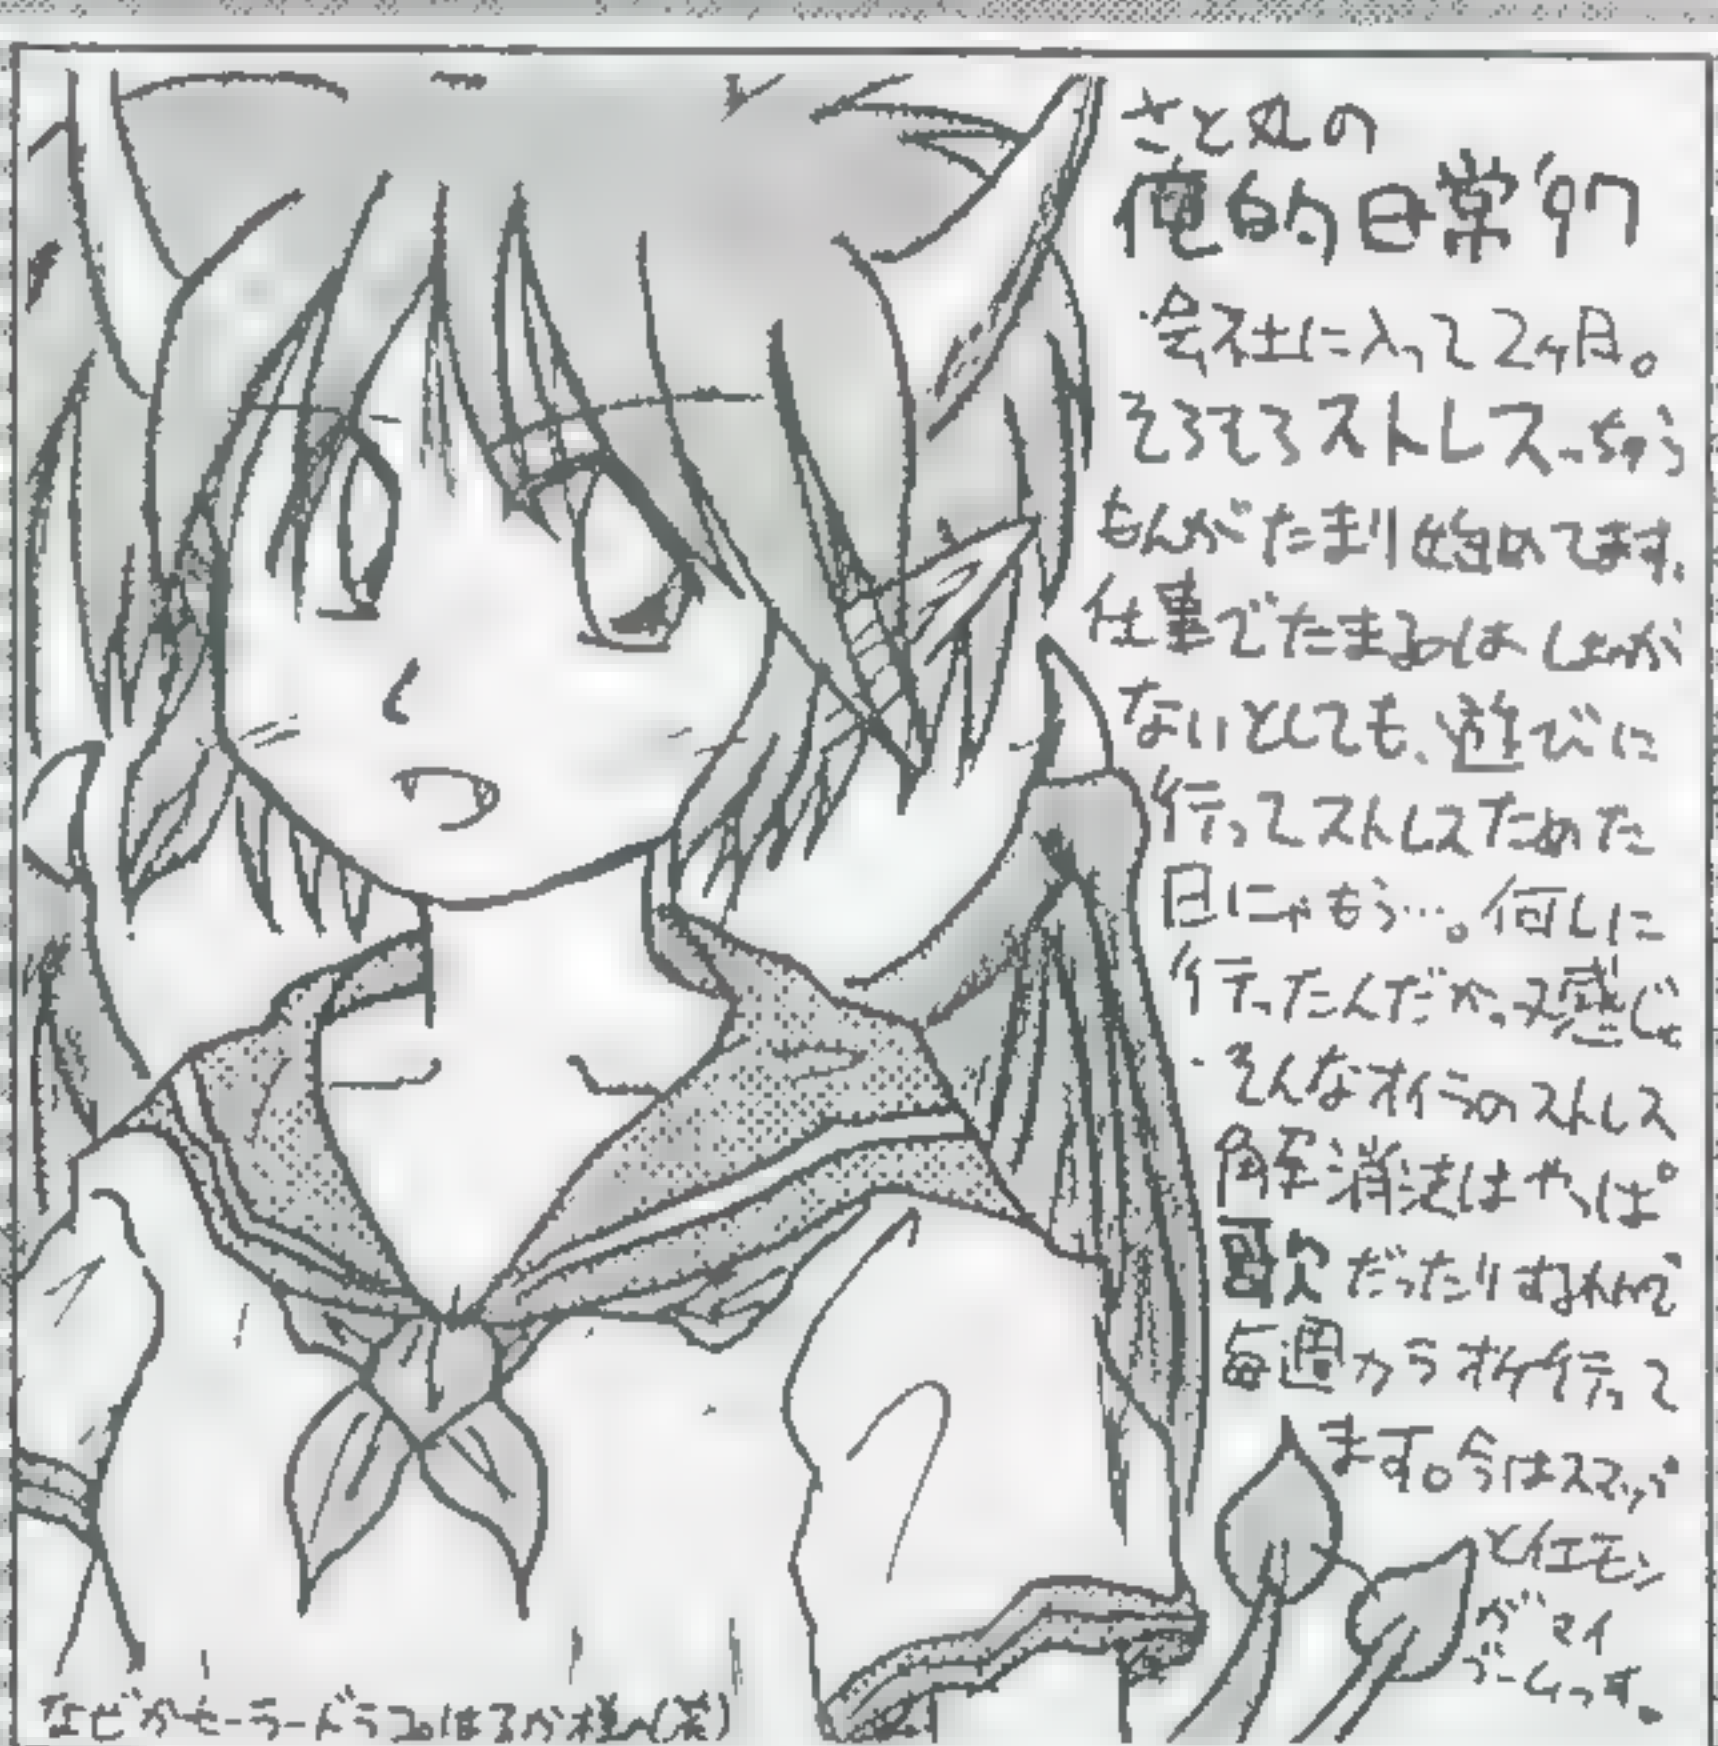 さと丸の
俺的日常'97
会社に入って2ヶ月。
そろそろストレスっちゅう
もんがたまり始めてます。
仕事でたまるのはしょうが
ないとしても、遊びに
行ってストレスためた
日にゃもう…。何しに
行ったんだかって感じ。
そんなオイラのストレス
解消法はやっぱ
歌だったりするわけで
毎週カラオケ行って
ます。今はスマップ
とイエモン
がマイ
ブームっす。
なぜかセーラードラコ。はるか様〜(笑)